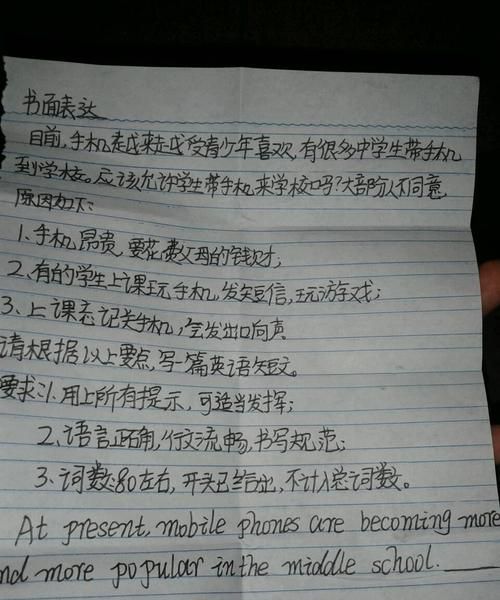 书面表达
目前,手机越来越受青少年喜欢,有很多中学生带手机
到学校。应该允许学生带手机来学校吗?大部份人不同意,
原因如下:
1、手机昂贵,要花费父母的钱财;
2、有的学生上课玩手机,发短信,玩游戏;
3、上课忘记关手机,会发出响声
请根据以上要点,写一篇英语短文。
要求:1.用上所有提示,可适当发挥;
2、语言正确,行文流畅,书写规范;
3、词数:80左右,开头已给出,不计入总词数。
At present, mobile phones are becoming more
and more popular in the middle school.